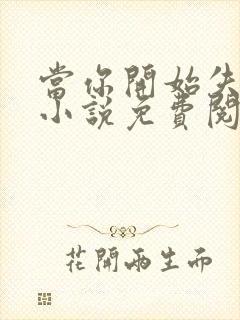 當你開始失
小說免費閱
花開兩生而